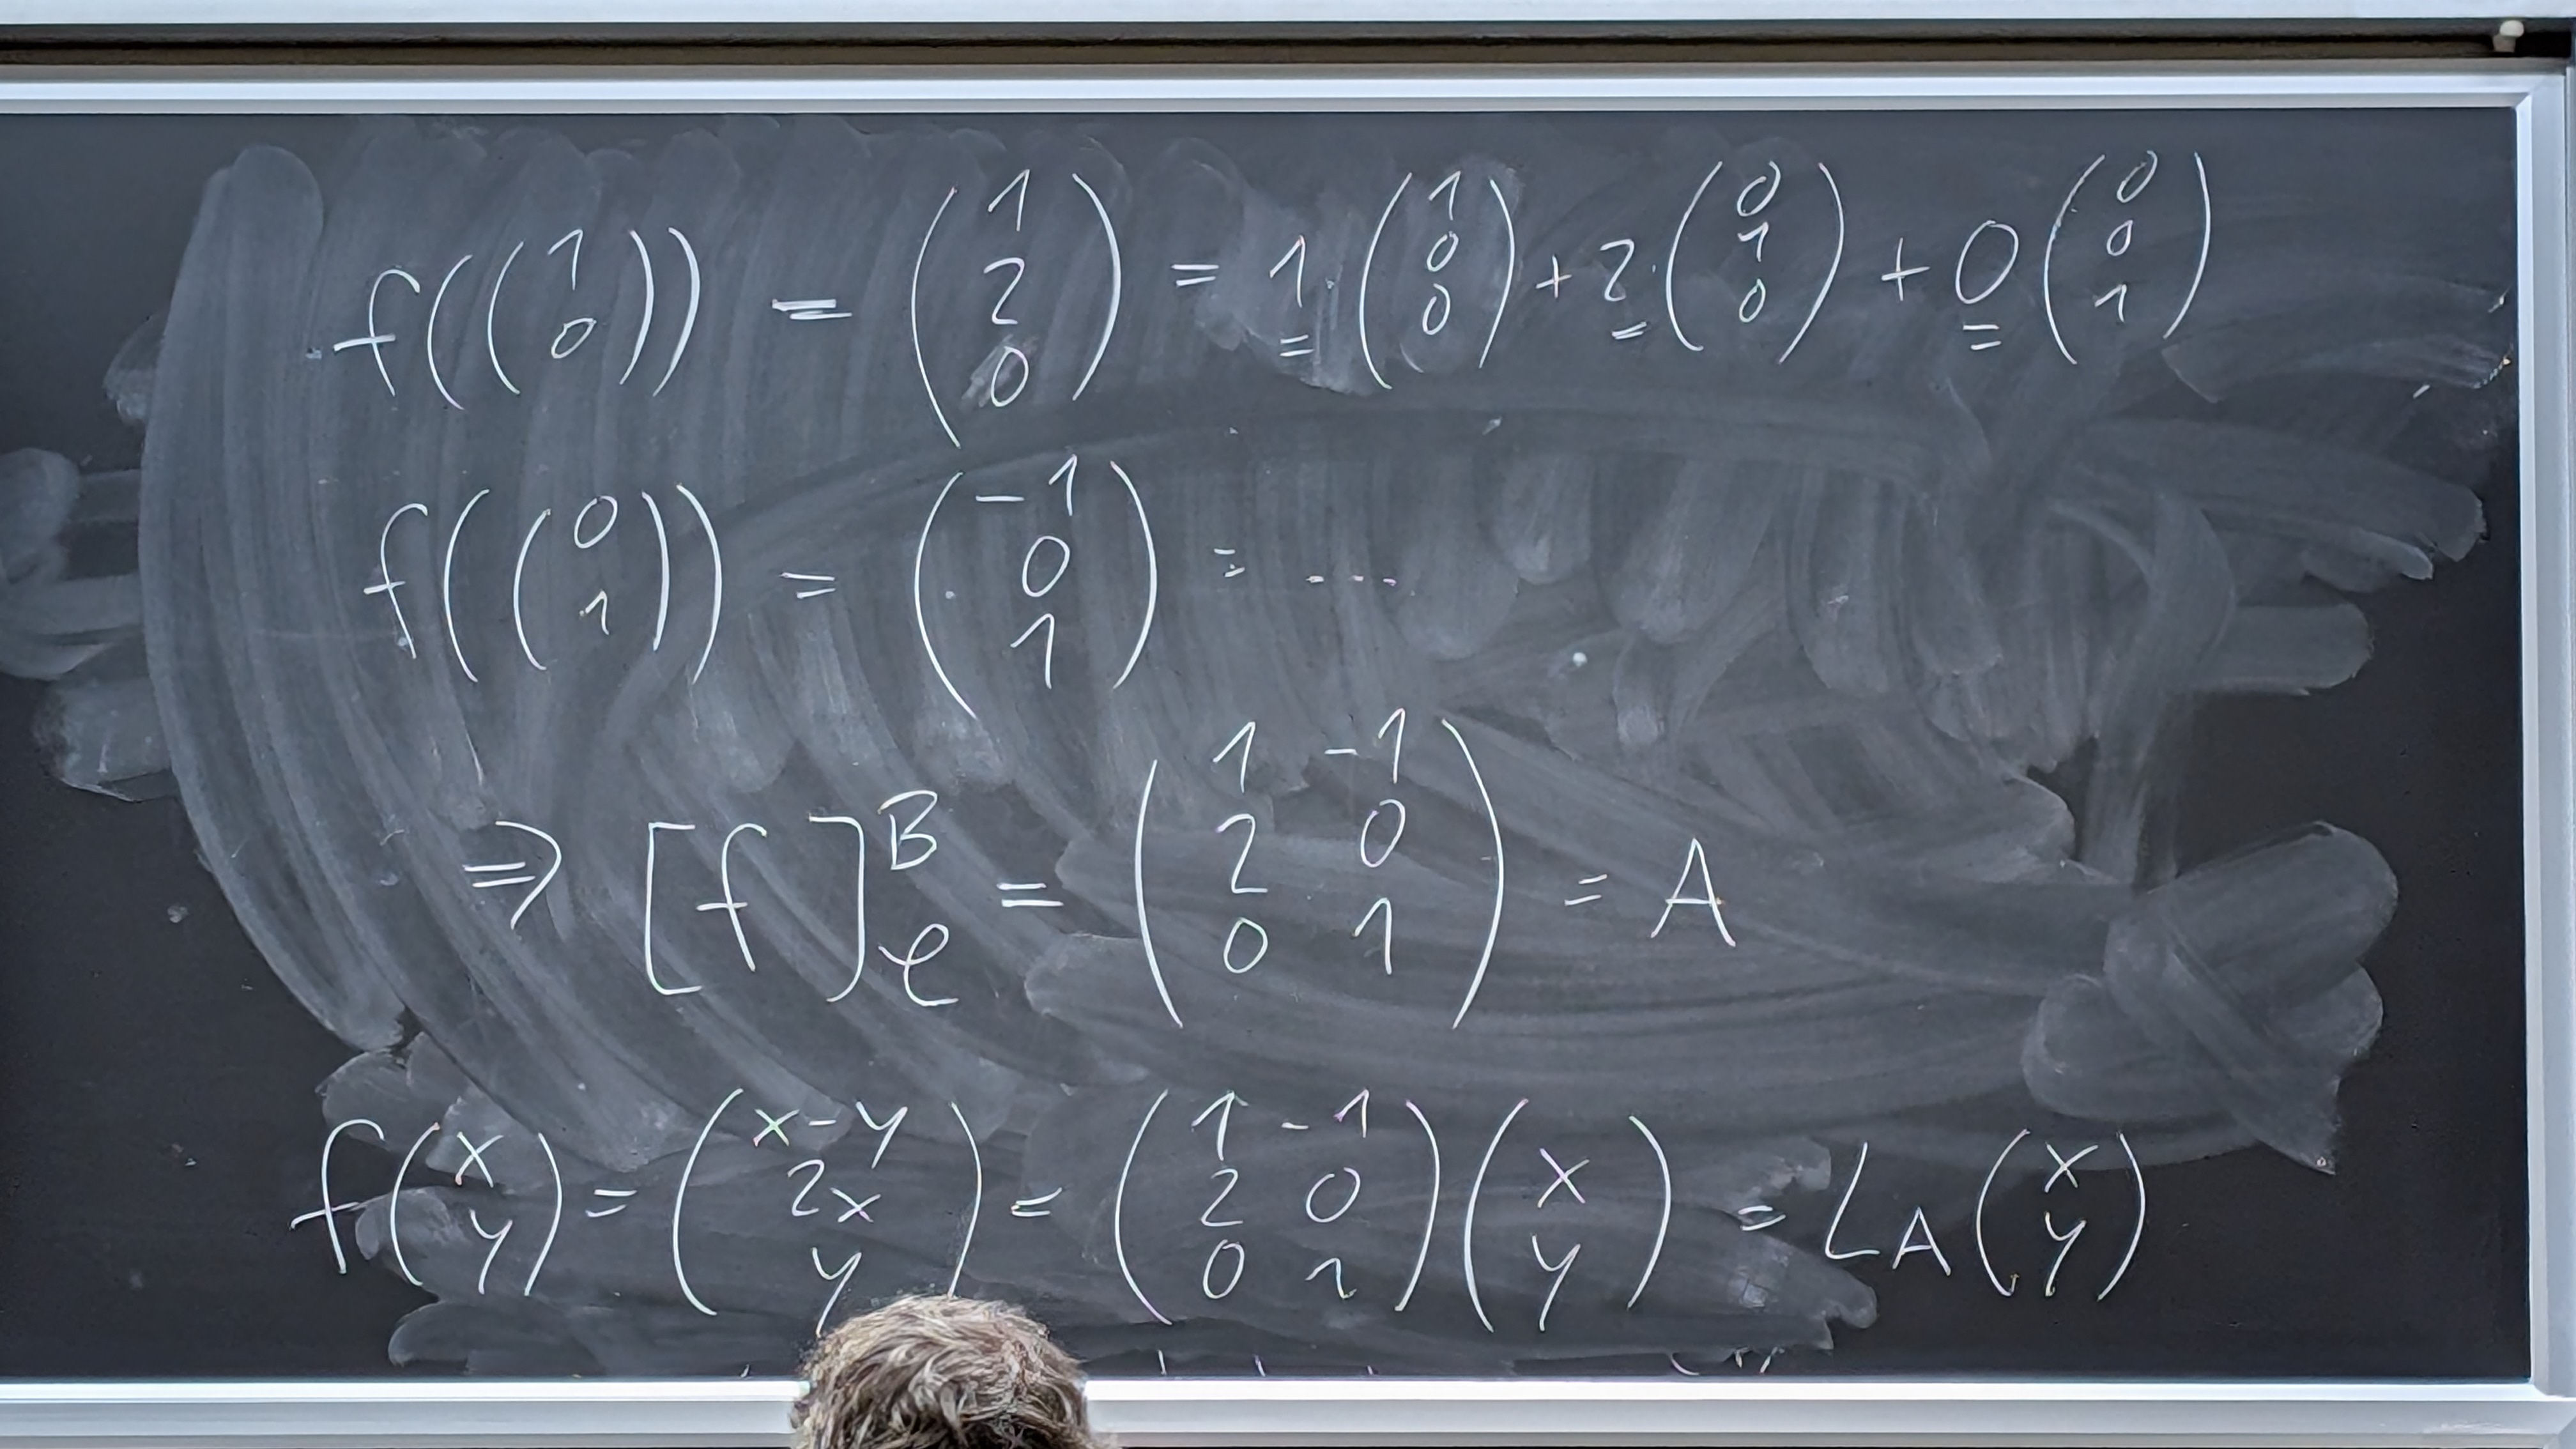 f((1 0)) = (1 2 0) = 1·(1 0 0) + 2·(0 1 0) + 0(0 0 1)
f((0 1)) = (-1 0 1) = ....
⇒ [f]^B_𝒞 = (1 -1; 2 0; 0 1) = A
f(x y) = (x-y 2x y) = (1 -1; 2 0; 0 1)(x y) = L_A(x y)